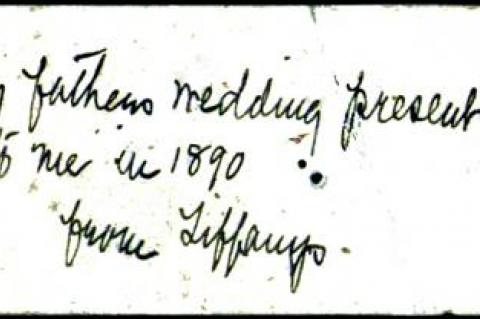 y fathers wedding present
to me in 1890
from Tiffanys.